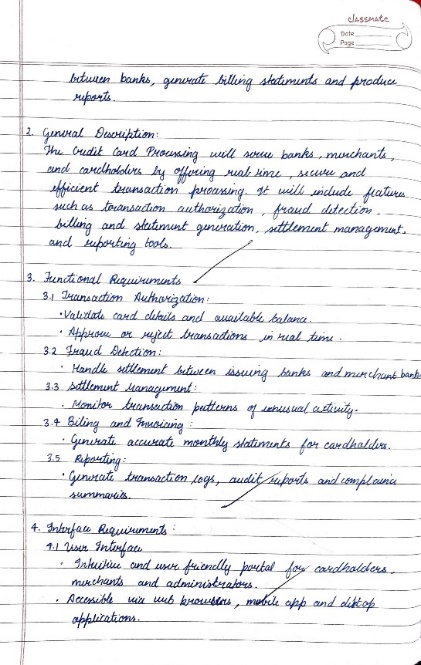 classmate
Date
Page
between banks, generate billing statements and produce
reports.
2. General Description:
The Credit Card Processing will serve banks, merchants,
and cardholders by offering real time, secure and
efficient transaction processing. It will include features
such as transaction authorization, fraud detection,
billing and statement generation, settlement management,
and reporting tools.
3. Functional Requirements
3.1 Transaction Authorization:
• Validate card details and available balance.
• Approve or reject transactions in real time.
3.2 Fraud Detection:
• Handle settlement between issuing banks and merchant banks
3.3 Settlement Management:
• Monitor transaction patterns of unusual activity.
3.4 Billing and Invoicing:
• Generate accurate monthly statements for cardholders.
3.5 Reporting:
• Generate transaction logs, audit reports and complaince
summaries.
4. Interface Requirements:
4.1 User Interface
• Intuitive and user friendly portal for cardholders,
merchants and administrators.
• Accessible via web browsers, mobile app and dektop
applications.